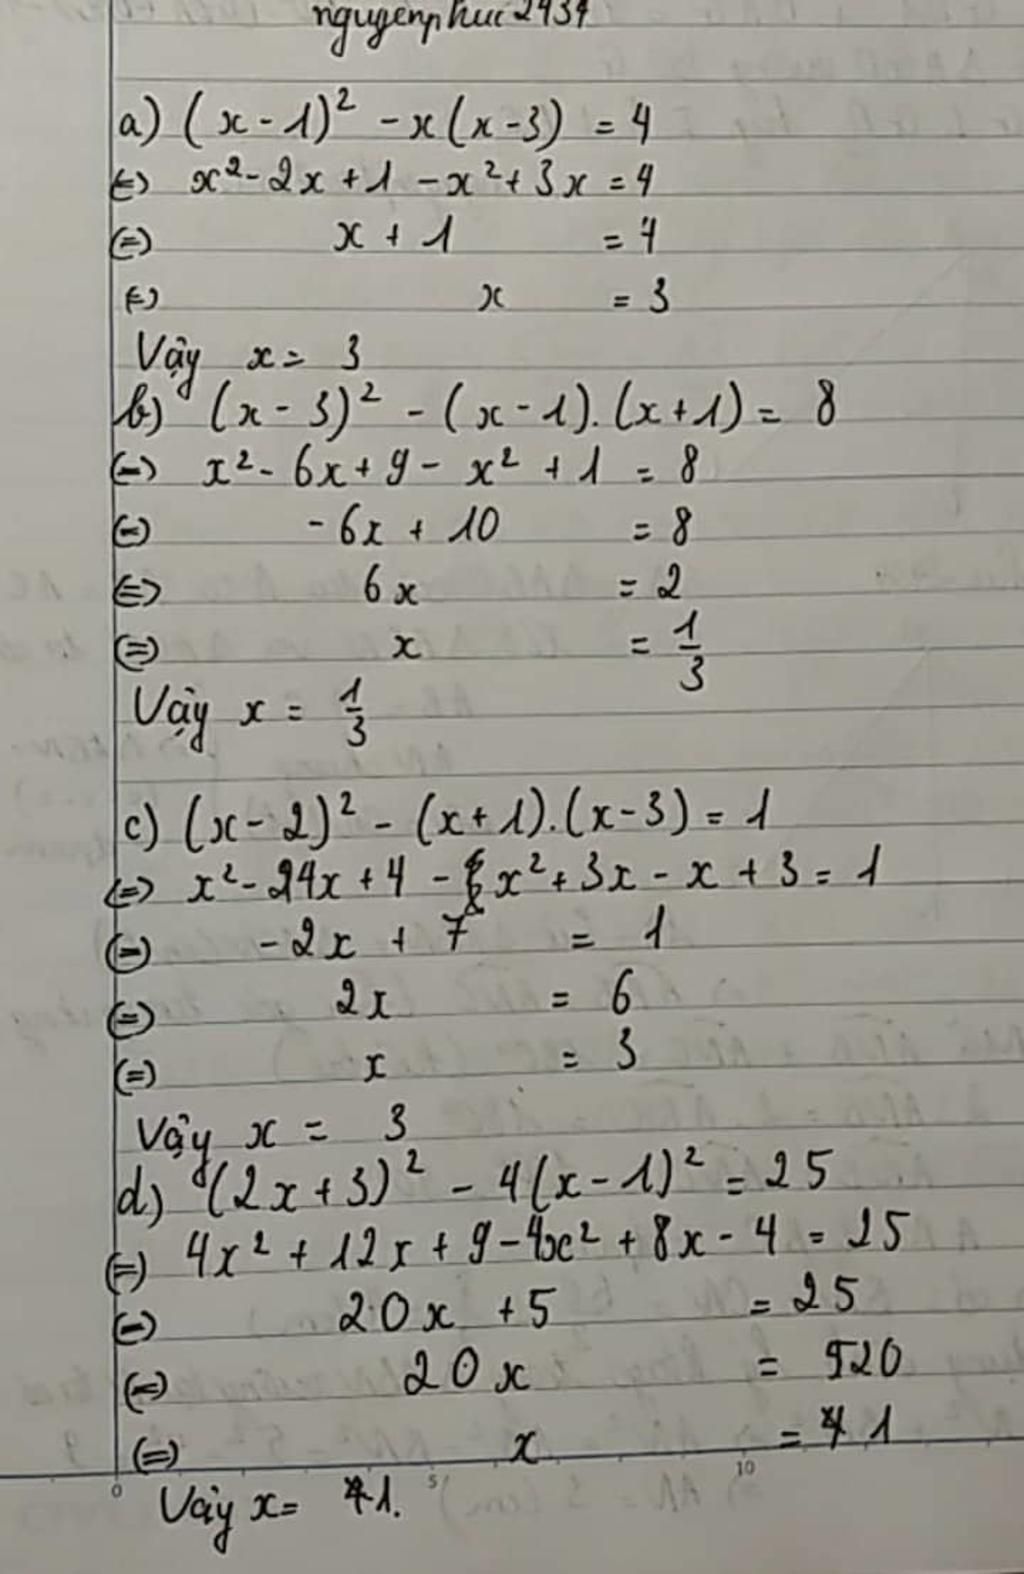 nguyenphuc2434
a) (x-1)² - x(x-3) = 4
(=) x² - 2x + 1 - x² + 3x = 4
(=) x + 1 = 4
(=) x = 3
Vậy x = 3
b) (x - 3)² - (x - 1).(x+1) = 8
(=) x² - 6x + 9 - x² + 1 = 8
(=) -6x + 10 = 8
(=) 6x = 2
(=) x = 1/3
Vậy x = 1/3
c) (x - 2)² - (x+1).(x-3) = 1
(=) x² - 4x + 4 - x² + 3x - x + 3 = 1
(=) -2x + 7 = 1
(=) 2x = 6
(=) x = 3
Vậy x = 3
d) (2x+3)² - 4(x-1)² = 25
(=) 4x² + 12x + 9 - 4x² + 8x - 4 = 25
(=) 20x + 5 = 25
(=) 20x = 20
(=) x = 1
0 5 10
Vậy x = 1.